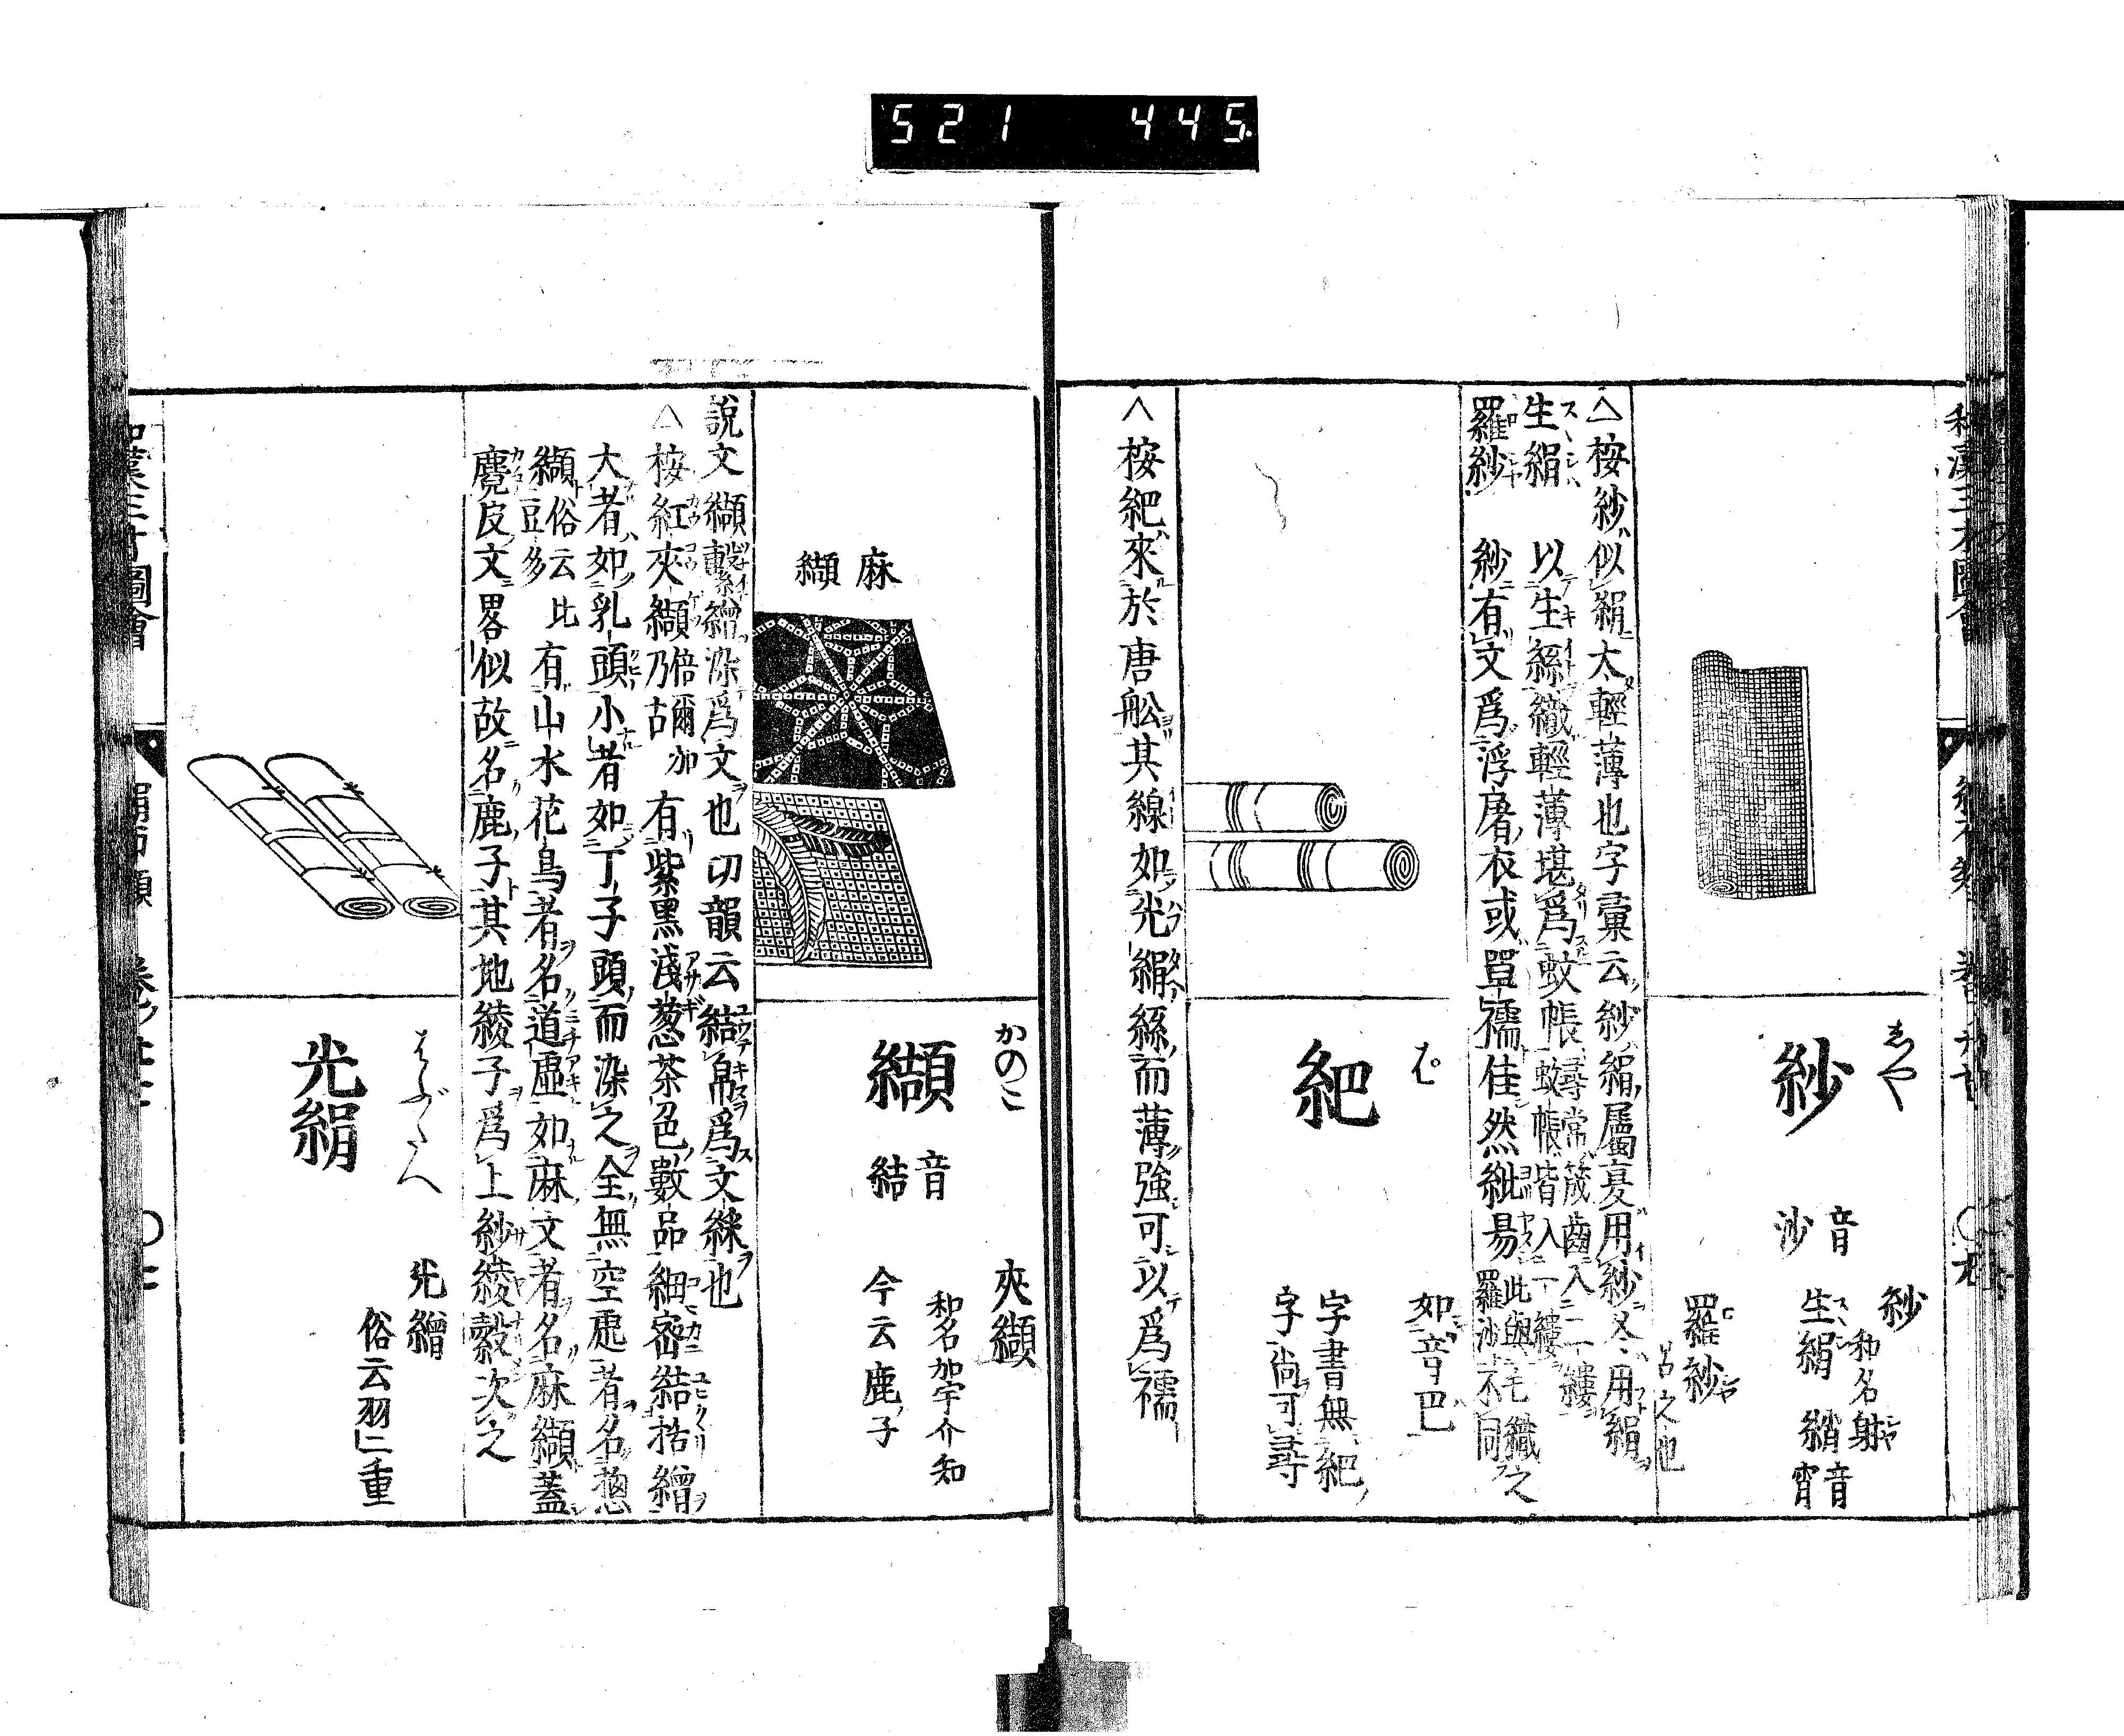 521 445
和漢三才圖會
しや
紗
音
沙
紗
和名射
生絹 綃 音
宵
羅紗
呂之也
△按紗似絹太輕薄也字彙云紗絹屬夏用紗冬用絹
生絹 以生絲織輕薄堪爲蚊帳 尋常筬齒入二縷
蚊帳皆入一縷
羅紗 紗有文爲浮屠衣或單襦佳然紕易 此與毛織之
羅沙不同
は
紦
如音巴
字書無紦
字尚可尋
△按紦來於唐舩其線如光絹絲而薄強可以爲襦
麻
纈
かのこ
纈
音
結
夾纈
和名加宇介知
今云鹿子
說文纈 繫繒染爲文也切韻云結帛爲文綵也
△按紅夾纈 倍爾加
乃古 有紫黑淺葱茶色數品細密結括繒
大者如乳頭小者如丁子頭而染之全無空處者名惣
纈 俗云比
豆多 有山水花鳥者名道虛如麻文者名麻纈蓋
麑皮文畧似故名鹿子其地綾子爲上紗綾縠次之
はぶたへ
光絹
光繒
俗云羽二重